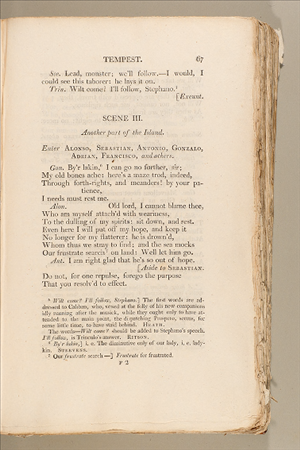 TEMPEST. 67
Ste. Lead, monster; we'll follow.—I would, I
could see this taborer: he lays it on.
Trin. Wilt come? I'll follow, Stephano.¹
[Exeunt.
SCENE III.
Another part of the Island.
Enter ALONSO, SEBASTIAN, ANTONIO, GONZALO,
ADRIAN, FRANCISCO, and others.
Gon. By'r lakin,² I can go no further, sir;
My old bones ache: here's a maze trod, indeed,
Through forth-rights, and meanders! by your pa-
tience,
I needs must rest me.
Alon. Old lord, I cannot blame thee,
Who am myself attach'd with weariness,
To the dulling of my spirits: sit down, and rest.
Even here I will put off my hope, and keep it
No longer for my flatterer: he is drown'd,
Whom thus we stray to find; and the sea mocks
Our frustrate search³ on land: Well let him go.
Ant. I am right glad that he's so out of hope.
[Aside to SEBASTIAN.
Do not, for one repulse, forego the purpose
That you resolv'd to effect.
Wilt come? I'll follow, Stephano.] The first words are ad-
dressed to Caliban, who, vexed at the folly of his new companions
idly running after the musick, while they ought only to have at-
tended to the main point, the dispatching Prospero, seems, for
some little time, to have staid behind. HEATH.
The words—Wilt come? should be added to Stephano's speech.
I'll follow, is Trinculo's answer. RITSON.
By'r lakin,] i. e. The diminutive only of our lady, i. e. lady-
kin. STEEVENS.
Our frustrate search—] Frustrate for frustrated.
F 2